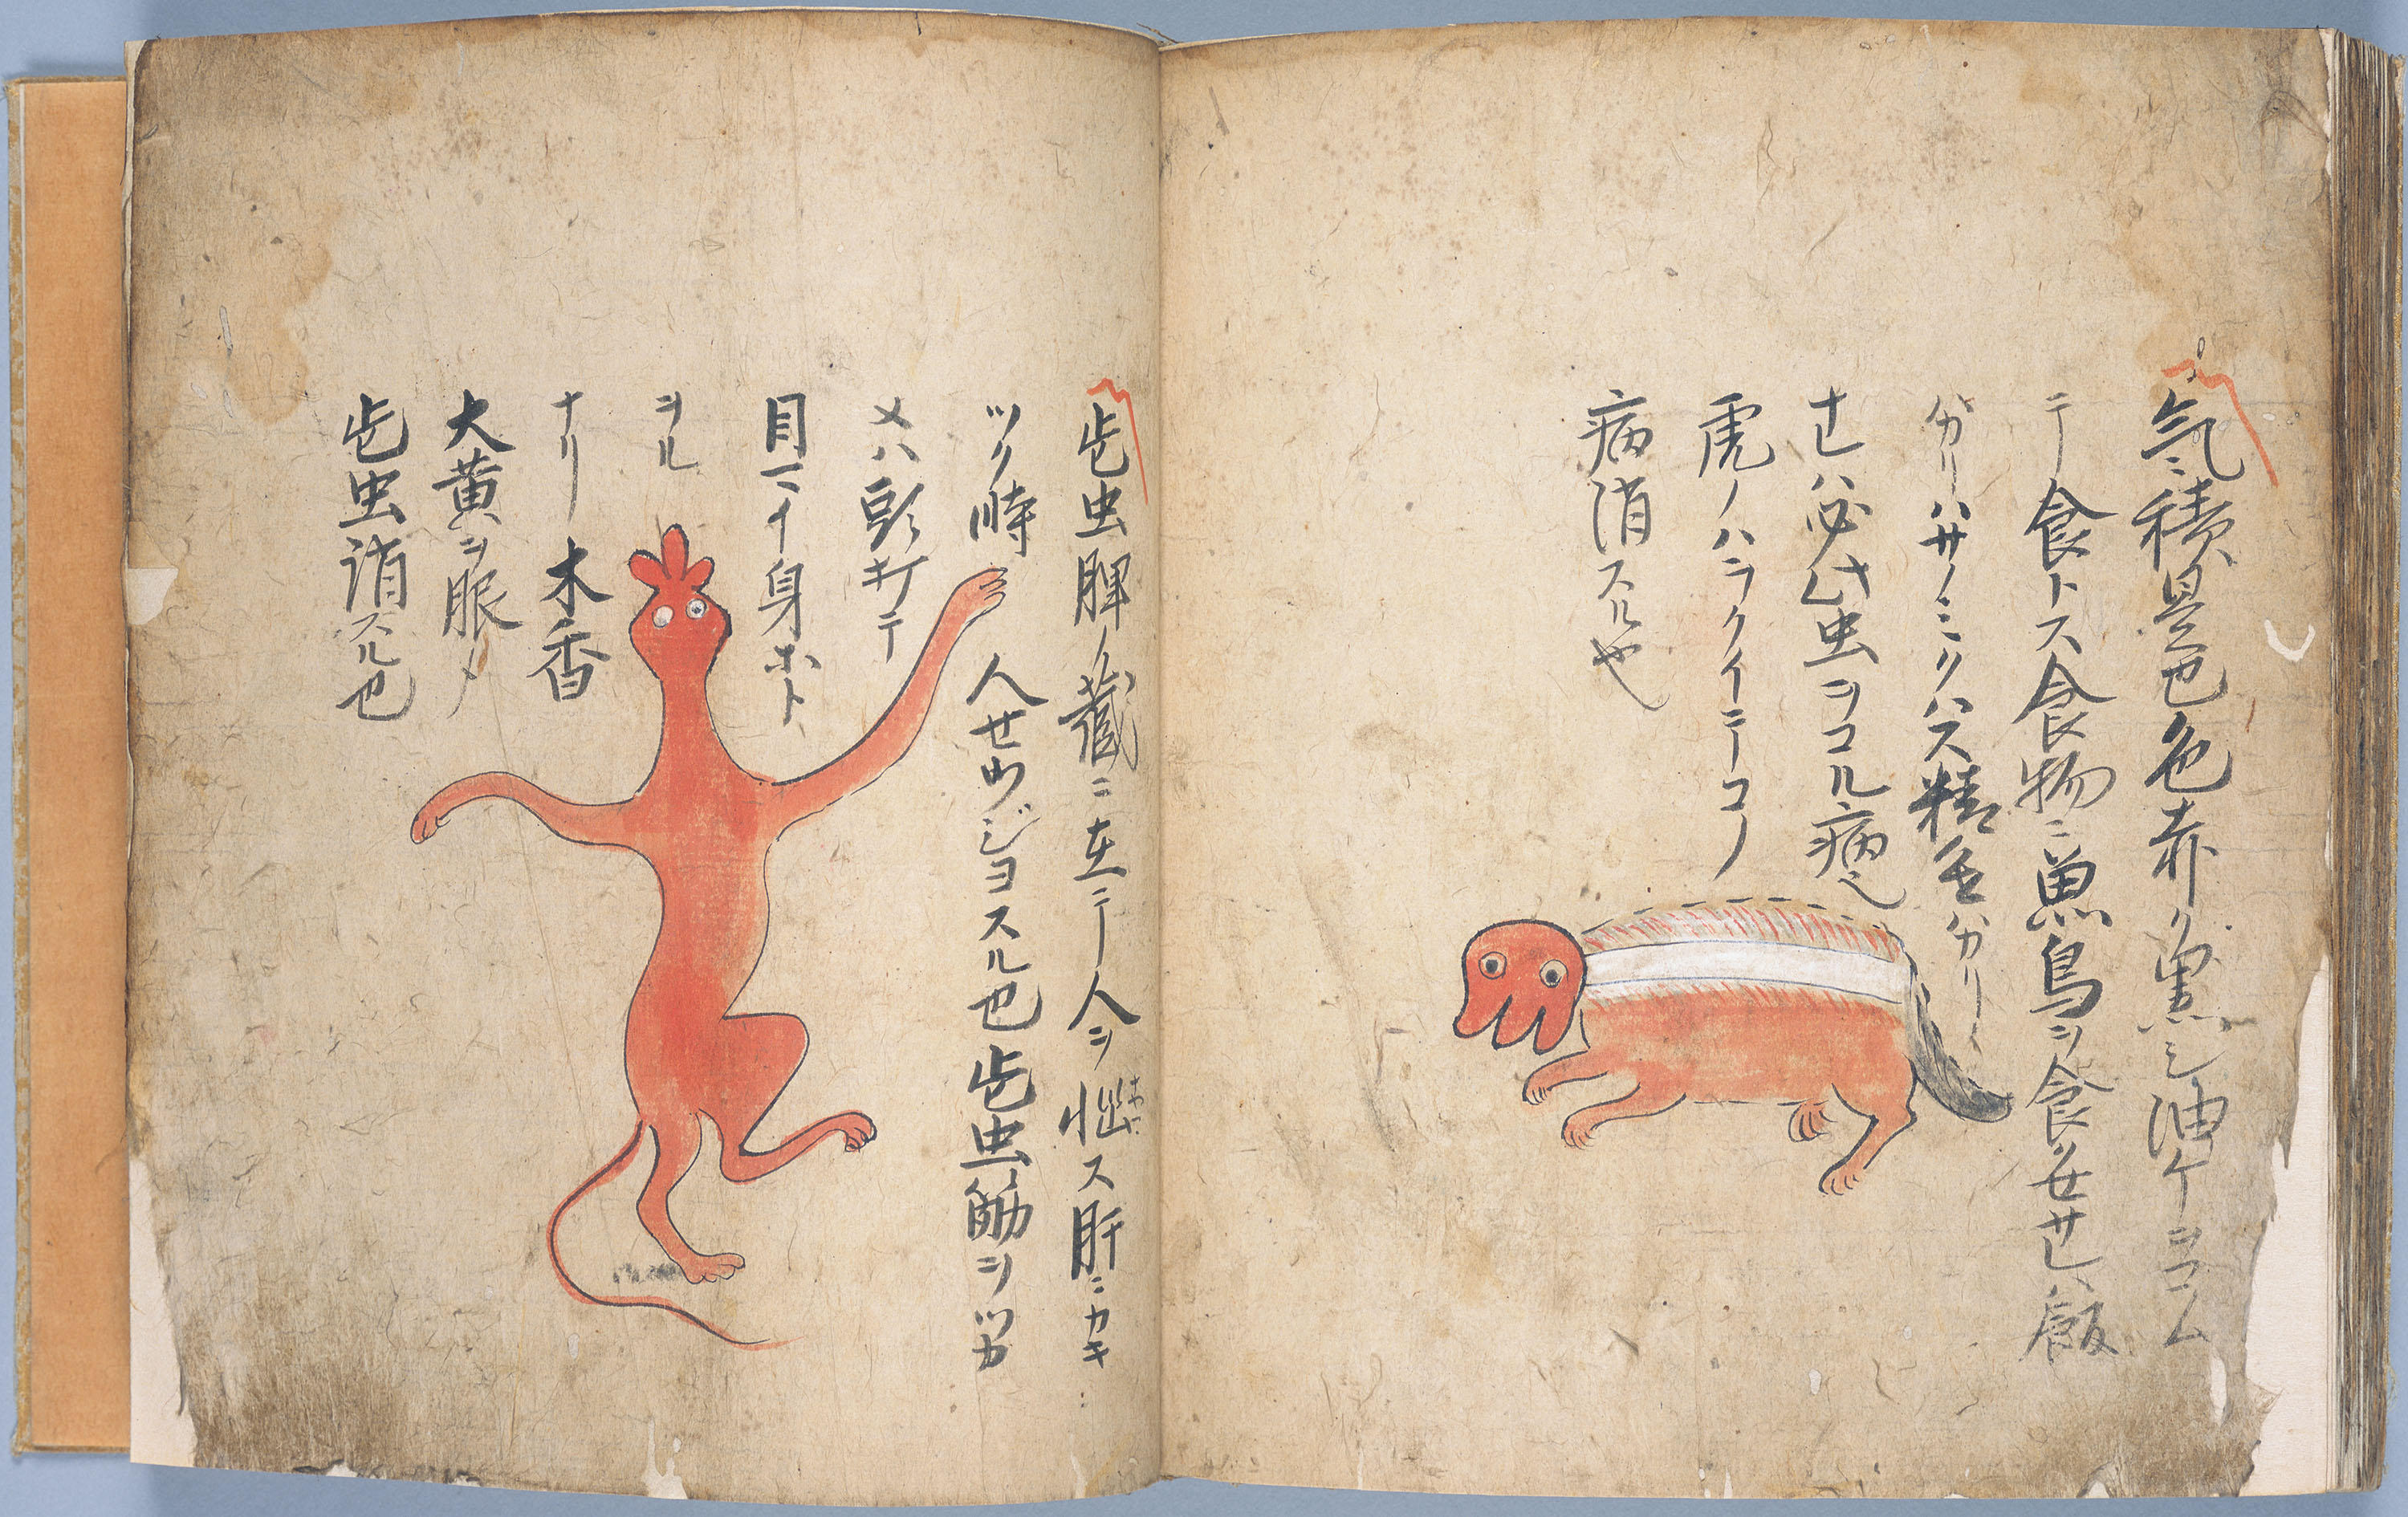 气積是也色赤ク黒シ油ケヲコム
テ食トス食物ニ魚鳥ヲ食セサレハ飯
ハカリハサノミクハス精ヲハカリ
ナレハ必此虫ヲコル病也
虎ノハラクイニテコノ
病消スルや
此虫脾ノ蔵ニ在テ人ヲ悩ス肝ニカキ
ツク時人セウジヨスル也此虫筋ヲツカ
メハ頭ウキテ
目マイ身ホト
ヲル
ナリ木香
大黄ヲ服メ
此虫消スル也